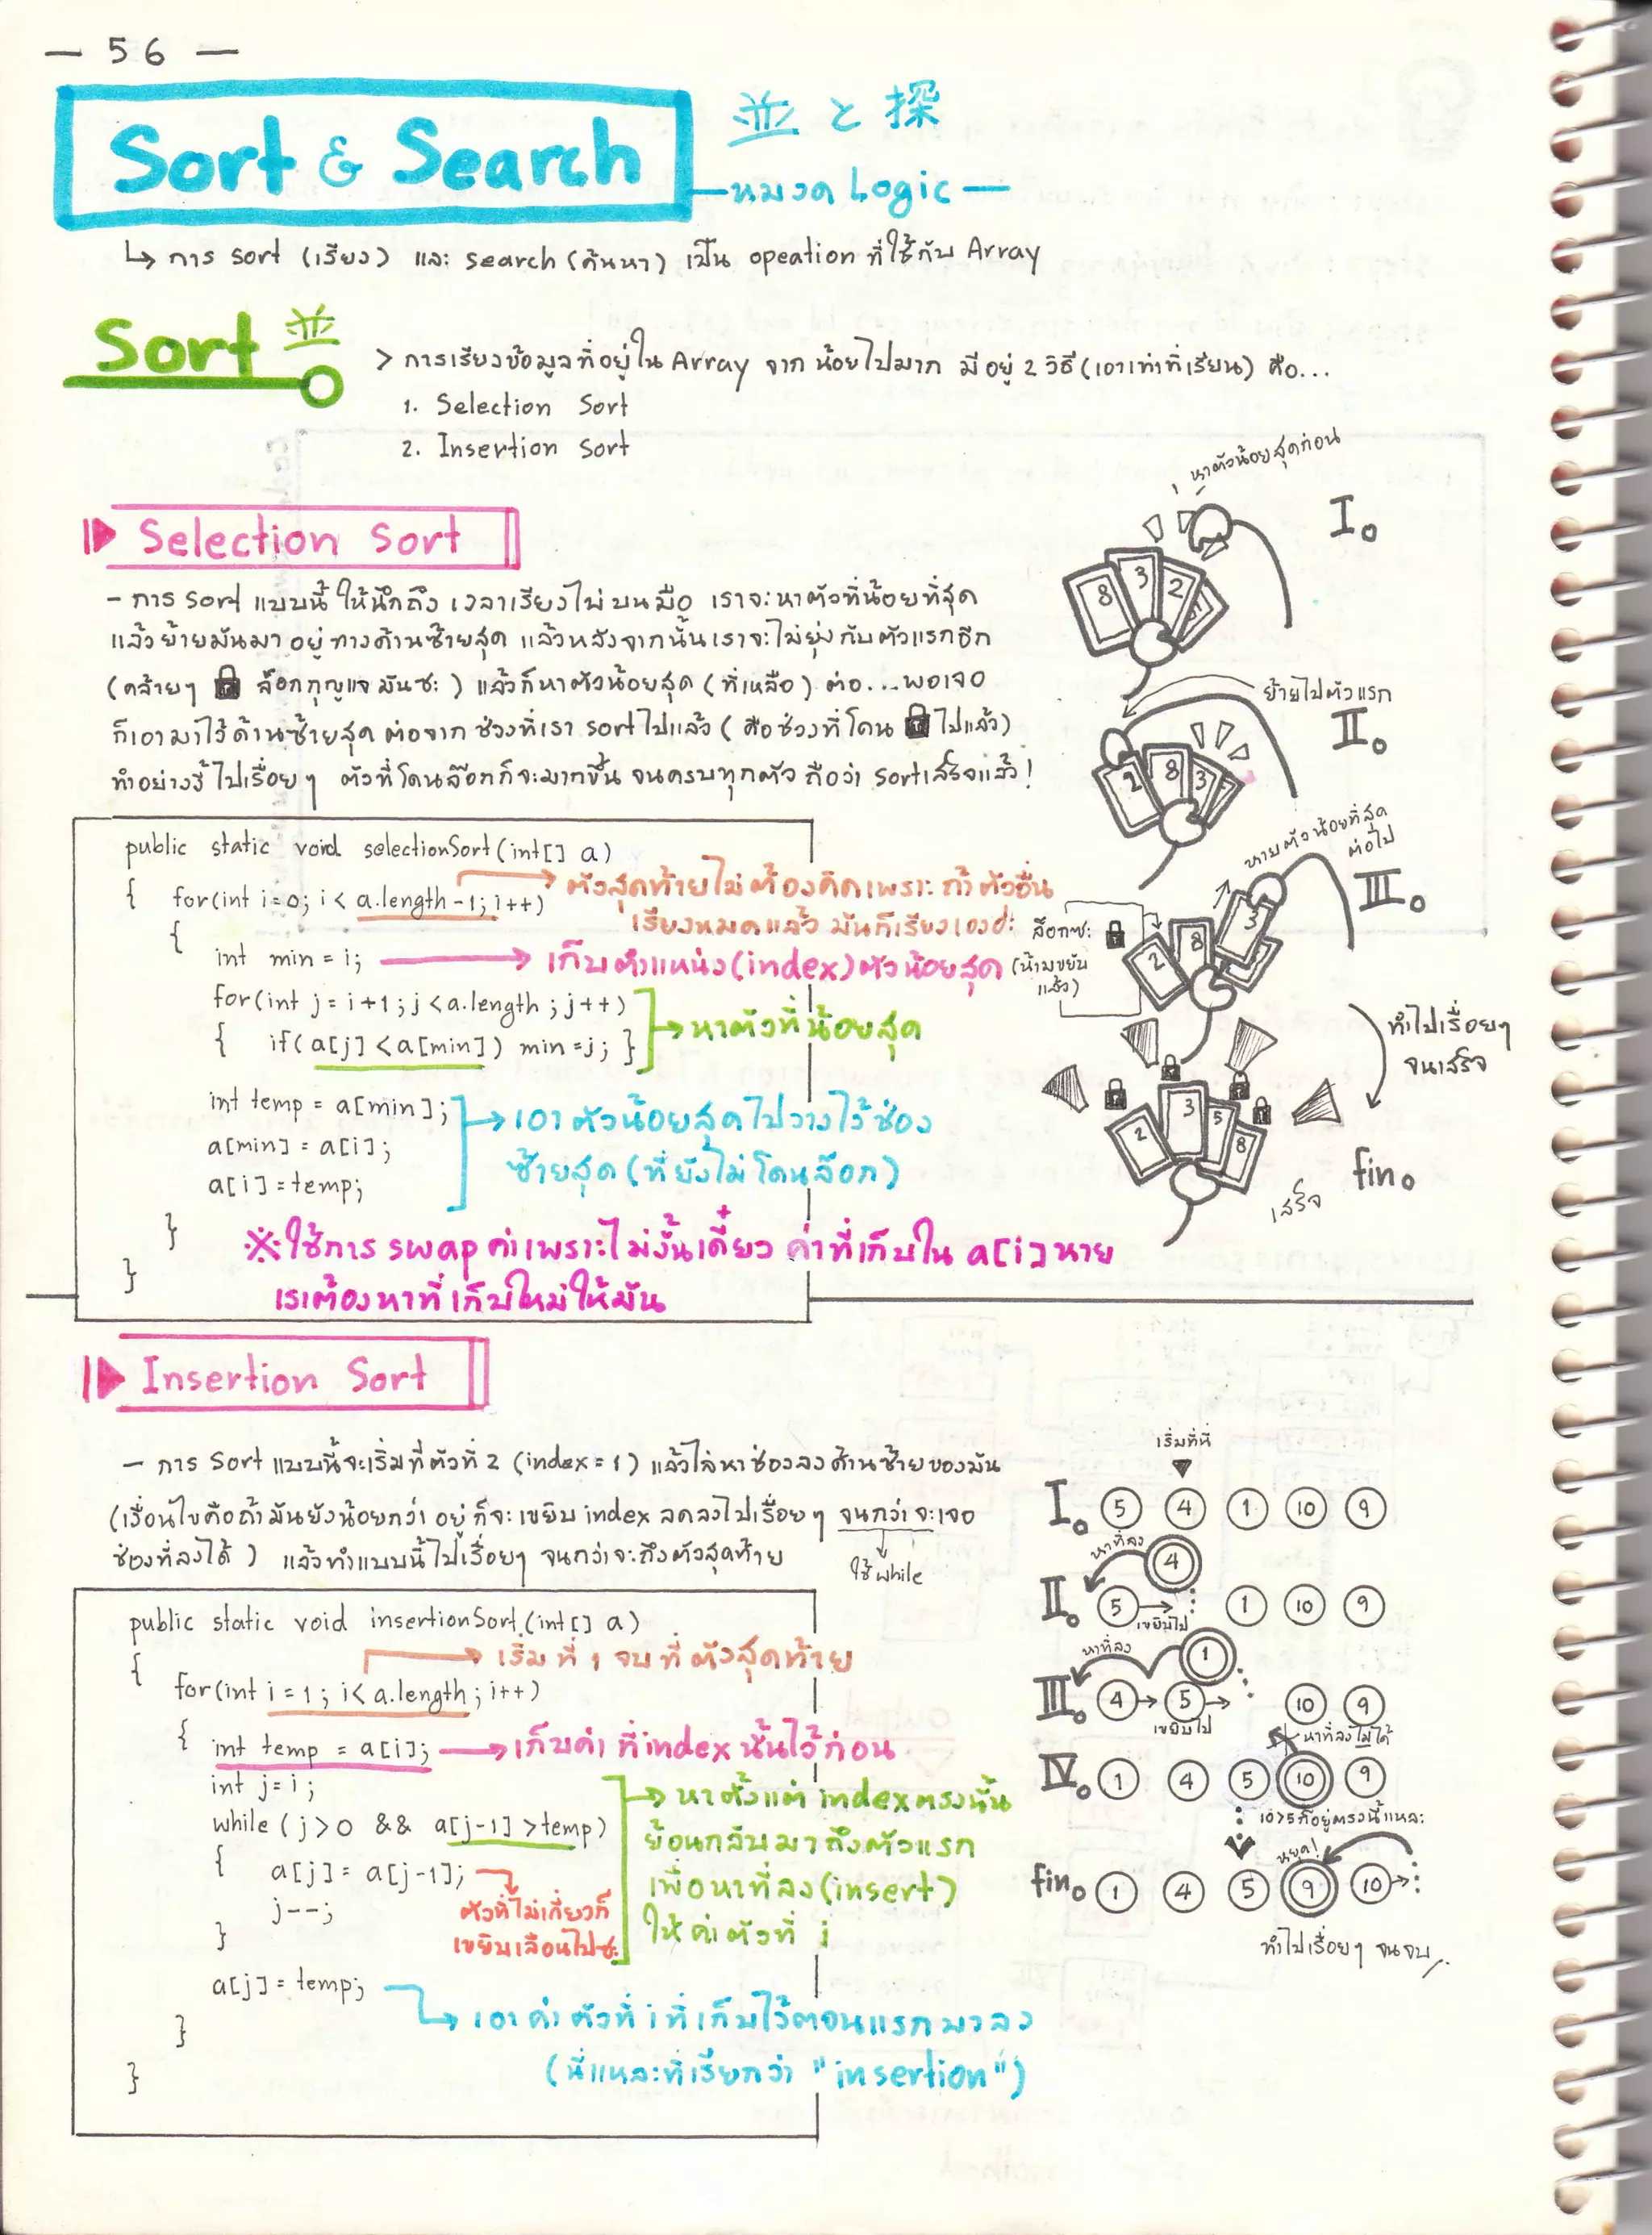 — 56 —
Sort & Search
並 と 探
—หมวด Logic—
↳ การ sort (เรียง) และ search (ค้นหา) เป็น opeation ที่ใช้กับ Array
Sort 並
> การเรียงข้อมูลที่อยู่ใน Array จาก น้อยไปมาก มีอยู่ 2 วิธี (เอาเท่าที่เรียน) คือ...
1. Selection Sort
2. Insertion Sort
Selection Sort
- การ sort แบบนี้ ให้นึกถึง เวลาเรียงไพ่บนมือ เราจะหาตัวที่น้อยที่สุด
แล้วย้ายมันมา อยู่ทางด้านซ้ายสุด แล้วหลังจากนั้นเราจะไม่ยุ่งกับตัวแรกอีก
(คล้ายๆ 🔒 ล็อกกุญแจมันซะ) แล้วก็หาตัวน้อยสุด (ที่เหลือ) ต่อ...พอเจอ
ก็เอามาไว้ด้านซ้ายสุด ต่อจาก ช่วงที่เรา sort ไปแล้ว (คือช่วงที่โดน 🔒 ไปแล้ว)
ทำอย่างงี้ไปเรื่อยๆ ตัวที่โดนล๊อกก็จะมากขึ้น จนครบทุกตัว ถือว่า sort เสร็จแล้ว!
public static void selectionSort(int[] a)
{ for(int i=0; i < a.length-1; i++)
ตัวสุดท้ายไม่ต้องคิดเพราะถ้าตัวอื่น
เรียงหมดแล้ว มันก็เรียงเองอ่ะ
{
int min = i;
เก็บตำแหน่ง(index)ตัวน้อยสุด
for(int j = i+1; j <a.length ; j++)
{ if(a[j] <a[min]) min =j; }
หาตัวที่น้อยสุด
int temp = a[min];
a[min] = a[i];
a[i] = temp;
เอาตัวน้อยสุดไปวางไว้ช่อง
ซ้ายสุด (ที่ยังไม่โดนล๊อก)
}
※ ใช้การ swap ค่าเพราะไม่งั้นเดี๋ยว ค่าที่เก็บใน a[i] หาย
เราต้องหาที่เก็บใหม่ให้มัน
}
หาตัวน้อยสุดก่อน
I.
8 3 2
ย้ายไปตัวแรก
II.
2 8 3
หาตัวน้อยที่สุด
ต่อไป
III.
ล็อกซะ 🔒
(ห้ามขยับ
แล้ว)
2 8 3
ทำไปเรื่อยๆ
จนเสร็จ
2 3 5 8
fin.
เสร็จ
Insertion Sort
- การ sort แบบนี้จะเริ่มที่ตัวที่ 2 (index = 1) แล้วไล่หาช่องลงด้านซ้ายของมัน
(เงื่อนไขคือถ้ามันยังน้อยกว่า อยู่ก็จะเขยิบ index ลดลงไปเรื่อยๆ จนกว่าจะเจอ
ช่องที่ลงได้ ) แล้วทำแบบนี้ไปเรื่อยๆ จนกว่าจะถึงตัวสุดท้าย
ใช้ while
public static void insertionSort(int[] a)
{
เริ่มที่ 1 จบที่ตัวสุดท้าย
for(int i = 1; i< a.length; i++)
{ int temp = a[i];
เก็บค่าที่ index นั้นไว้ก่อน
int j = i;
while (j > 0 && a[j-1] >temp)
{ a[j] = a[j-1];
j--;
}
ตัวที่ไม่เกี่ยวก็
เขยิบเลื่อนไปซะ
หาตั้งแต่ index ตรงนั้น
ย้อนกลับมาถึงตัวแรก
เพื่อหาที่ลง(insert)
ให้ค่าตัวที่ i
a[j] = temp;
เอาค่าตัวที่ i ที่เก็บไว้ตอนแรกมาลง
(นี่แหละที่เรียกว่า "insertion")
}
}
เริ่มที่นี่
I. 5 4 1 10 9
หาที่ลง
4
II. 5 1 10 9
เขยิบไป
หาที่ลง
1
III. 4 5 10 9
เขยิบไป
หาที่ลงไม่ได้
IV. 1 4 5 10 9
10>5 ก็อยู่ตรงนี้แหละ
หยุด!
fin. 1 4 5 9 10
ทำไปเรื่อยๆ จนจบ